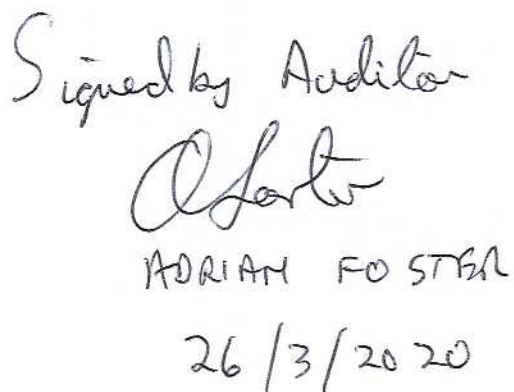 Signed by Auditor
AFoster
ADRIAN FOSTER
26/3/2020